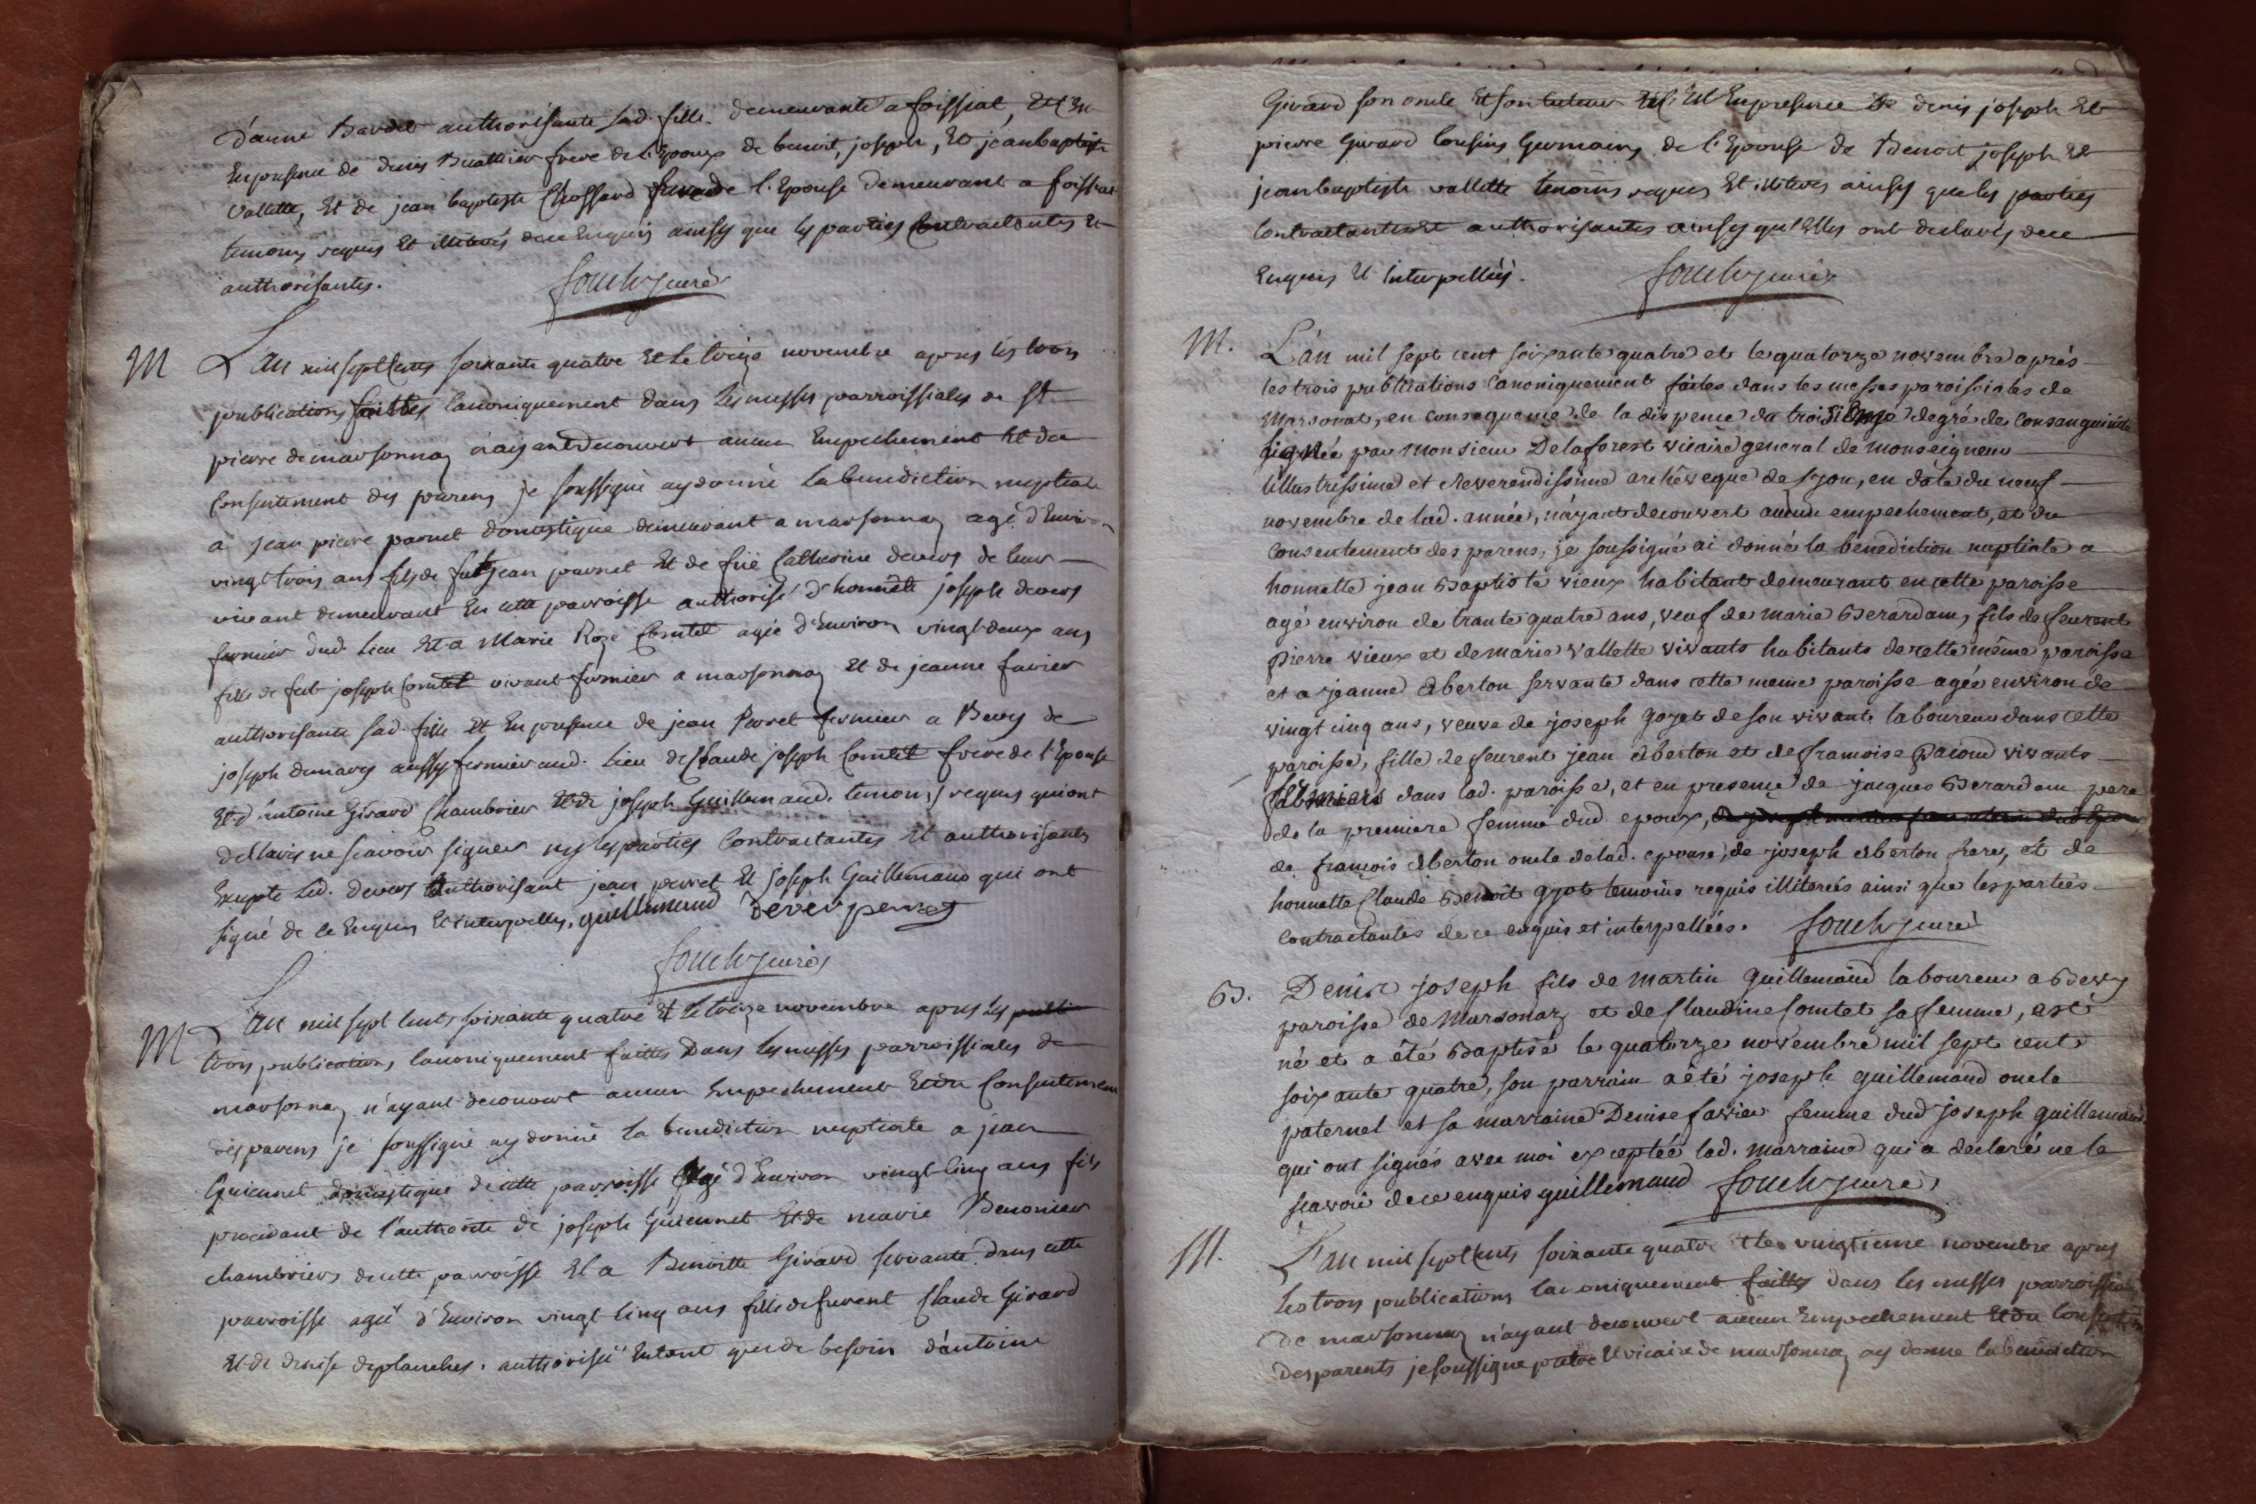 d'anne authorisante sad. fille demeurante a foissiat, Et En
En presence de denis Buathier frere de l'Epoux de benoit, joseph, Et jean baptiste
Vallette, Et de jean baptiste Chossard de l'Epouse demeurant a foissiat
temoins requis Et illiterés de ce Enquis ainsy que les parties Contractantes Et
authorisantes.
fouch curé
M
L'an mil sept Cents soixante quatre Et Le treize novembre apres les trois
publications faittes Canoniquement dans les messes parroissiales de St
pierre de marsonnay n'ayant decouvert aucun Empechement Et du
Consentement des parens je soussigné ay donné La benediction nuptiale
a jean pierre parnet domestique demeurant a marsonnay agé d'Environ
vingt trois ans fils de fut jean parnet Et de fuë Catherine devers de leur
vivant demeurant En cette parroisse authorisé d'honnete joseph devers
fermier dud. Lieu Et a Marie Roze Comtet agée d'Environ vingt deux ans
fille de fut joseph Comtet vivant fermier a marsonnay Et de jeanne favier
authorisante sad. fille Et En presence de jean Perret fermier a Bevey de
joseph aussy fermier aud. Lieu de Claude joseph Comtet frere de l'Epouse
Et d'antoine Girard Chambrier Et de joseph Guillemaud. temoins requis qui ont
declarés ne scavoir signer ny les parties Contractantes Et authorisantes
Excepté Led. devers authorisant jean perret Et joseph Guillemaud qui ont
signé de ce Enquis Et interpellés. guillemaud Dever perret
fouch curé
M
L'an mil sept Cents soixante quatre Et le treize novembre apres les
trois publications Canoniquement faittes Dans les messes parroissiales de
marsonnay n'ayant decouvert aucun Empechement Et du Consentement
des parens je soussigné ay donné la benediction nuptiale a jean
Guiennet domestique de cette parroisse agé d'Environ vingt Cinq ans fils
procedant de l'authorité de joseph Guiennet Et de marie Benonier
chambriers de cette parroisse Et a Benoitte Girard servante dans cette
parroisse agée d'Environ vingt Cinq ans fille de fuvent Claude Girard
Et de denise deplanches. authorisée Entant que de besoin d'antoine
Girard son oncle Et son tuteur Et En presence de denis joseph Et
pierre Girard Cousins Germains de l'Epouse de Benoit joseph Et
jean baptiste vallette temoins requis Et illiterés ainsy que les parties
Contractantes Et authorisantes ainsy qu'Elles ont declarés de ce
Enquis Et Interpellés.
fouch curé
M.
L'an mil sept cent soixante quatre et le quatorze novembre aprés
les trois publications Canoniquement faites dans les messes paroissiales de
Marsonat, en consequence de la dispence du troisieme degré de Consanguinité
signée par Monsieur Delaforest vicaire general de Monseigneur
l'illustrissime et Reverendissime archêveque de lyon, en date du neuf
novembre de lad. année, n'ayant decouvert aucun empechement, et du
Consentement des parens, je soussigné ai donné la benediction nuptiale a
honnette jean Baptiste vieux habitant demeurant en cette paroisse
agé environ de trante quatre ans, veuf de marie Berardam, fils de feurent
pierre vieux et de marie vallette vivants habitants de cette même paroisse
et a jeanne Eberton servante dans cette meme paroisse agée environ de
vingt cinq ans, veuve de joseph goyet de son vivant laboureur dans cette
paroisse, fille de feurent jean eberton et de francoise pacoud vivants
fermiers dans lad. paroisse, et en presence de jacques Berardam pere
de la premiere femme dud. epoux,
de francois eberton oncle de lad. epouse, de joseph eberton frere, et de
honnette Claude Benoit gyot temoins requis illiterés ainsi que les parties
Contractantes de ce enquis et interpellées. fouch curé
B.
Denis joseph fils de Martin guillemaud laboureur a Bevey
paroisse de Marsonay et de Claudine Comtet sa femme, est
né et a été Baptisé le quatorze novembre mil sept cent
soixante quatre, son parrain a été joseph guillemaud oncle
paternel et sa marraine Denise favier femme dud joseph guillemaud
qui ont signés avec moi exceptée lad. marraine qui a declaré ne le
scavoir de ce enquis guillemaud fouch curé
M.
L'an mil sept Cents soixante quatre Et le vingtieme novembre apres
Les trois publications Canoniquement faittes dans les messes parroissiales
de marsonnay n'ayant decouvert aucun Empechement Et du Consentement
des parents je soussigné pretre Et vicaire de marsonnay ay donné la benediction